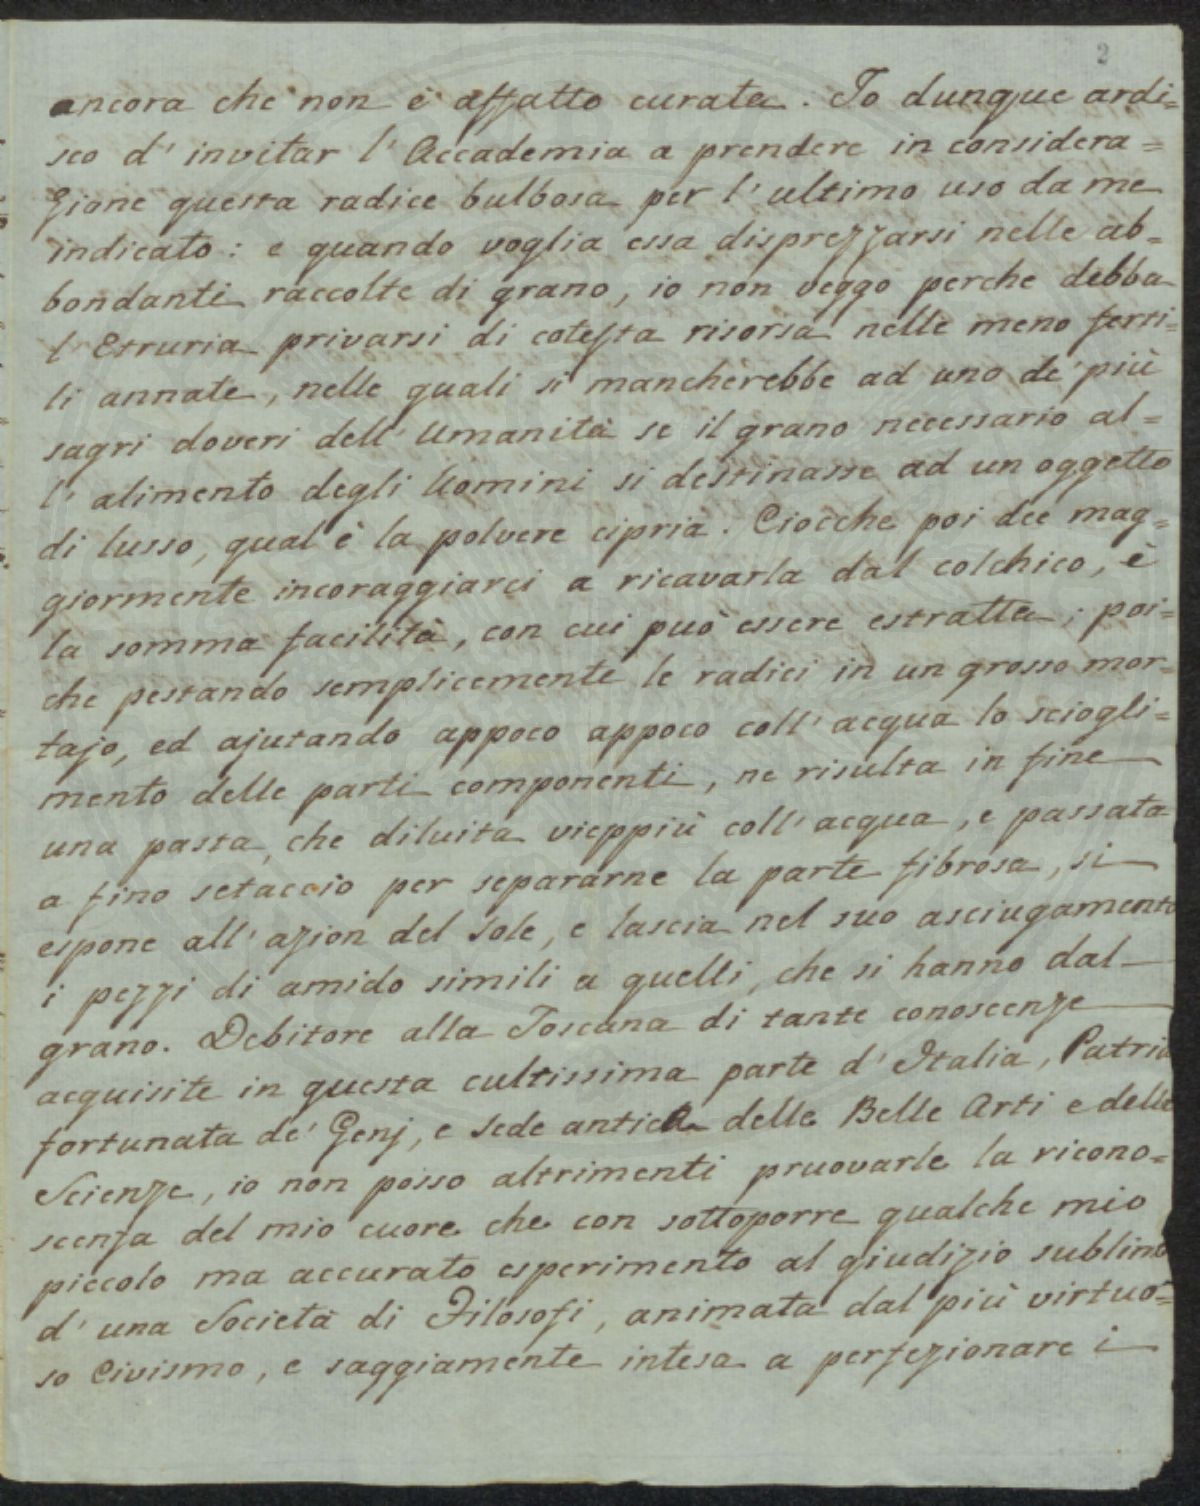 2
ancora che non è affatto curata. Io dunque ardi=
sco d' invitar l' Accademia a prendere in considera=
zione questa radice bulbosa per l' ultimo uso da me
indicato: e quando voglia essa disprezzarsi nelle ab=
bondanti raccolte di grano, io non veggo perche debba
l' Etruria privarsi di cotesta risorsa nelle meno ferti=
li annate, nelle quali si mancherebbe ad uno de' più
sagri doveri dell' Umanità se il grano necessario al=
l' alimento degli Uomini si destinasse ad un oggetto
di lusso, qual è la polvere cipria. Ciocche poi dee mag=
giormente incoraggiarci a ricavarla dal colchico, è
la somma facilità, con cui può essere estratta; poi=
che pestando semplicemente le radici in un grosso mor=
tajo, ed ajutando appoco appoco coll' acqua lo sciogli=
mento delle parti componenti, ne risulta in fine
una pasta, che diluita vieppiù coll' acqua, e passata
a fino setaccio per separarne la parte fibrosa, si
espone all' azion del Sole, e lascia nel suo asciugamento
i pezzi di amido simili a quelli, che si hanno dal
grano. Debitore alla Toscana di tante conoscenze
acquisite in questa cultissima parte d' Italia, Patria
fortunata de' Genj, e Sede antica delle Belle Arti e delle
Scienze, io non posso altrimenti pruovarle la ricono=
scenza del mio cuore che con sottoporre qualche mio
piccolo ma accurato esperimento al giudizio sublime
d' una Società di Filosofi, animata dal più virtuo=
so Civismo, e saggiamente intesa a perfezionare i